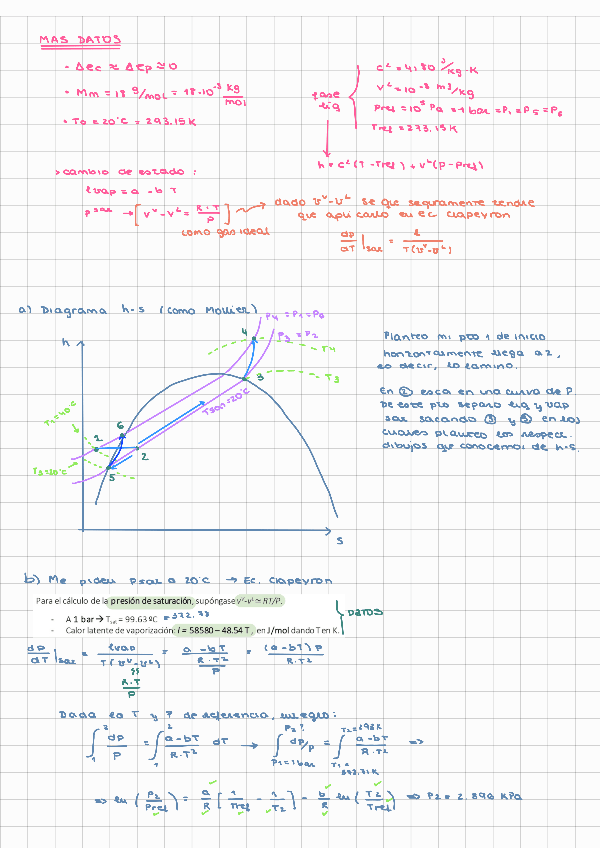 MAS DATOS
• Δec ≈ Δep ≈ 0
• Mm = 18 g/mol = 18·10⁻³ kg/mol
• To = 20°C = 293.15K
fase liq
cᴸ = 4,180 J/kg·K
vᴸ = 10⁻³ m³/kg
Pref = 10⁵ Pa = 1 bar = P₁ = P₅ = P₆
Tref = 273.15K
h = cᴸ(T - Tref) + vᴸ(P - Pref)
> cambio de estado :
lvap = a - b T
psat → [vⱽ - vᴸ = R·T/P]
como gas ideal
dado vⱽ-vᴸ se que seguramente tendre
que aplicarlo en ec clapeyron
dp/dT |sat = l/T(vⱽ-vᴸ)
a) Diagrama h-s (como Mollier)
h
s
P4 = P1 = P6
P3 = P2
T4
T3
T1=40°C
T5=20°C
Tsat=20°C
1
2
3
4
5
6
Planteo mi pto 1 de inicio
horizontalmente llega a 2,
es decir, lo lamino.
En ② esca en una curva de P
De este pto separo liq y vap
sat sacando ③ y ⑤ en los
cuales planteo los respec.
dibujos que conocemos de h-s.
b) Me piden Psat a 20°C → Ec. Clapeyron
Para el cálculo de la presión de saturación, supóngase vⱽ-vᴸ ≃ RT/P.
- A 1 bar → Tsat = 99.63 ºC = 372.78
- Calor latente de vaporización: l = 58580 – 48.54 T , en J/mol dando T en K.
DATOS
dp/dT |sat = lvap/T(vⱽ-vᴸ) = a-bT/(R·T²/P) = (a-bT)P/R·T²
≈
R·T/P
Dada la T y P de referencia, integro:
∫₁² dp/P = ∫₁² a-bT/R·T² dT → ∫ dp/p = ∫ a-bT/R·T² ⇒
P2?
P1=1bar
T2=293K
T1=
⇒ ln (P2/Pref) = a/R [1/Tref - 1/T2] - b/R ln (T2/Tref) ⇒ P2 = 2.896 kPa